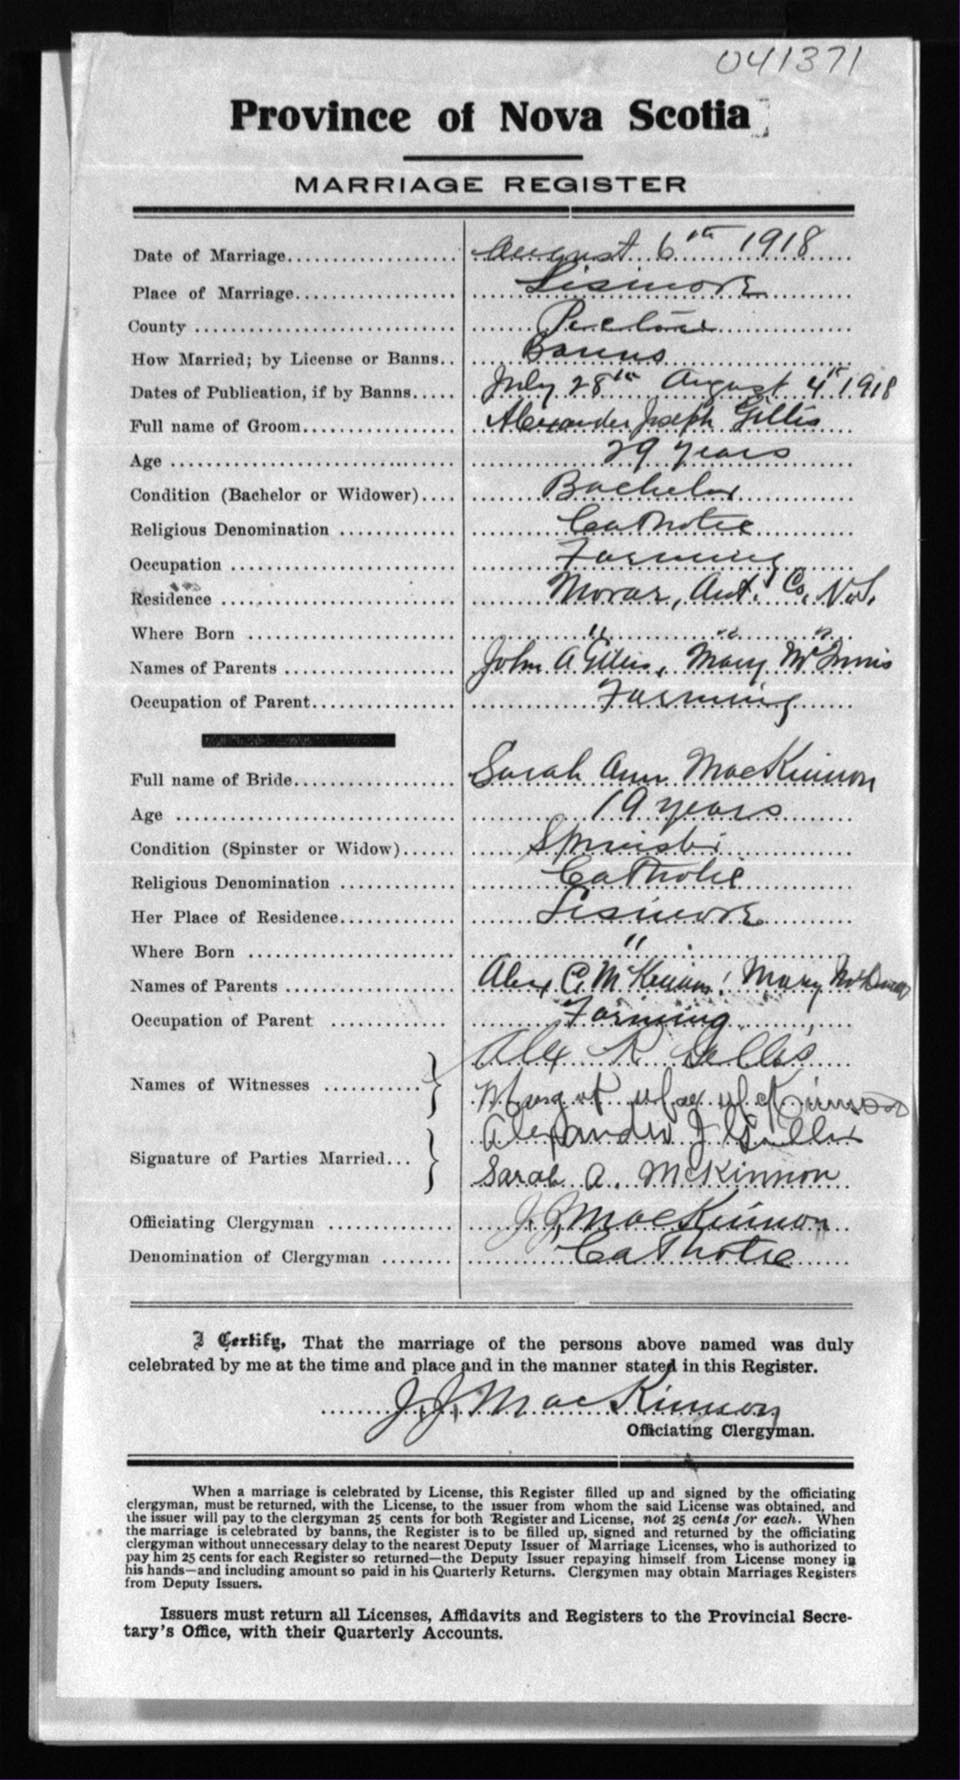 041371
Province of Nova Scotia
MARRIAGE REGISTER
Date of Marriage August 6th 1918
Place of Marriage Lismore
County Pictou
How Married; by License or Banns Banns
Dates of Publication, if by Banns July 28th August 4th 1918
Full name of Groom Alexander Joseph Gillis
Age 29 years
Condition (Bachelor or Widower) Bachelor
Religious Denomination Catholic
Occupation Farming
Residence Morar, Ant. Co, N.S.
Where Born " " "
Names of Parents John A Gillis, Mary McInnis
Occupation of Parent Farming
Full name of Bride Sarah Ann MacKinnon
Age 19 years
Condition (Spinster or Widow) Spinster
Religious Denomination Catholic
Her Place of Residence Lismore
Where Born "
Names of Parents Alex C. McKinnon Mary
Occupation of Parent Farming
Alex R Gillis
Names of Witnesses
McKinnon
Alexander J Gillis
Signature of Parties Married
Sarah A. McKinnon
Officiating Clergyman J. J. MacKinnon
Denomination of Clergyman Catholic
I Certify, That the marriage of the persons above named was duly
celebrated by me at the time and place and in the manner stated in this Register.
J. J. MacKinnon
Officiating Clergyman.
When a marriage is celebrated by License, this Register filled up and signed by the officiating
clergyman, must be returned, with the License, to the issuer from whom the said License was obtained, and
the issuer will pay to the clergyman 25 cents for both Register and License, not 25 cents for each. When
the marriage is celebrated by banns, the Register is to be filled up, signed and returned by the officiating
clergyman without unnecessary delay to the nearest Deputy Issuer of Marriage Licenses, who is authorized to
pay him 25 cents for each Register so returned—the Deputy Issuer repaying himself from License money in
his hands—and including amount so paid in his Quarterly Returns. Clergymen may obtain Marriages Registers
from Deputy Issuers.
Issuers must return all Licenses, Affidavits and Registers to the Provincial Secre-
tary's Office, with their Quarterly Accounts.